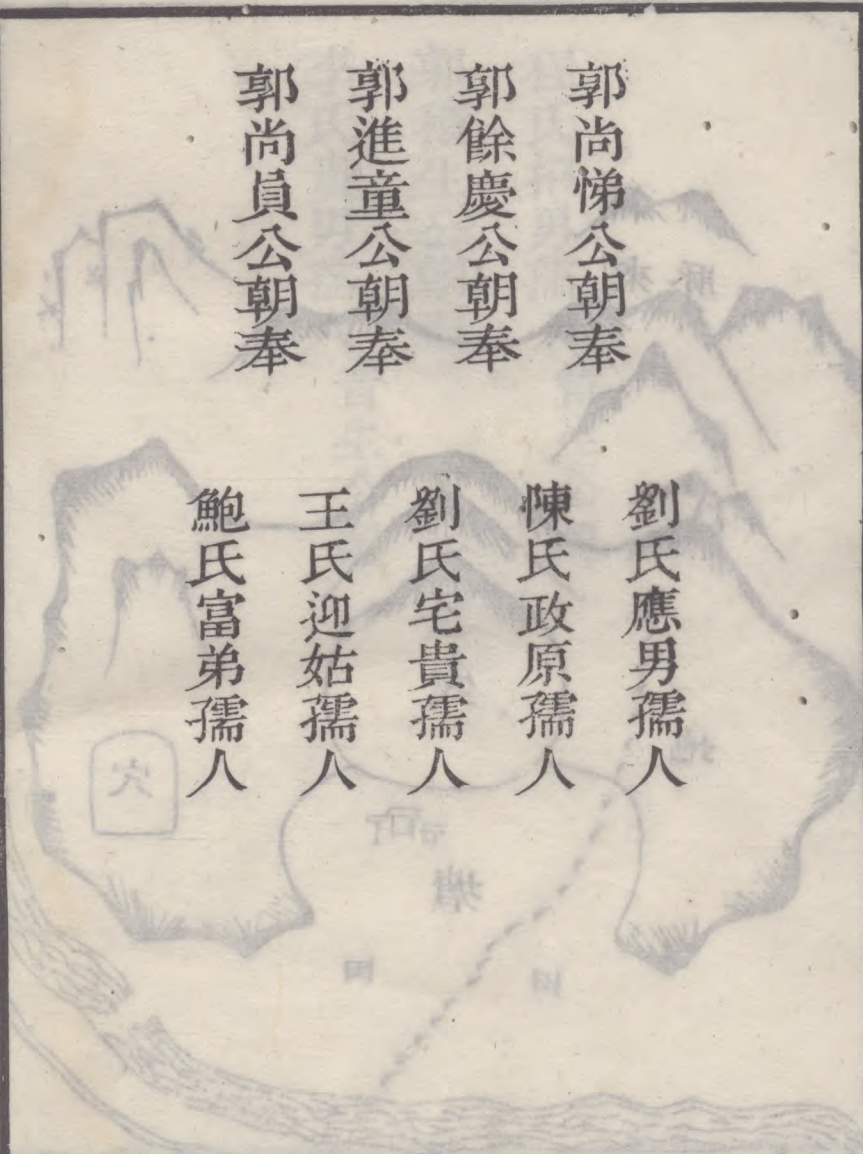 郭尚悌公朝奉
郭餘慶公朝奉
郭進童公朝奉
郭尚員公朝奉
劉氏應男孺人
陳氏政原孺人
劉氏宅貴孺人
王氏迎姑孺人
鮑氏富弟孺人